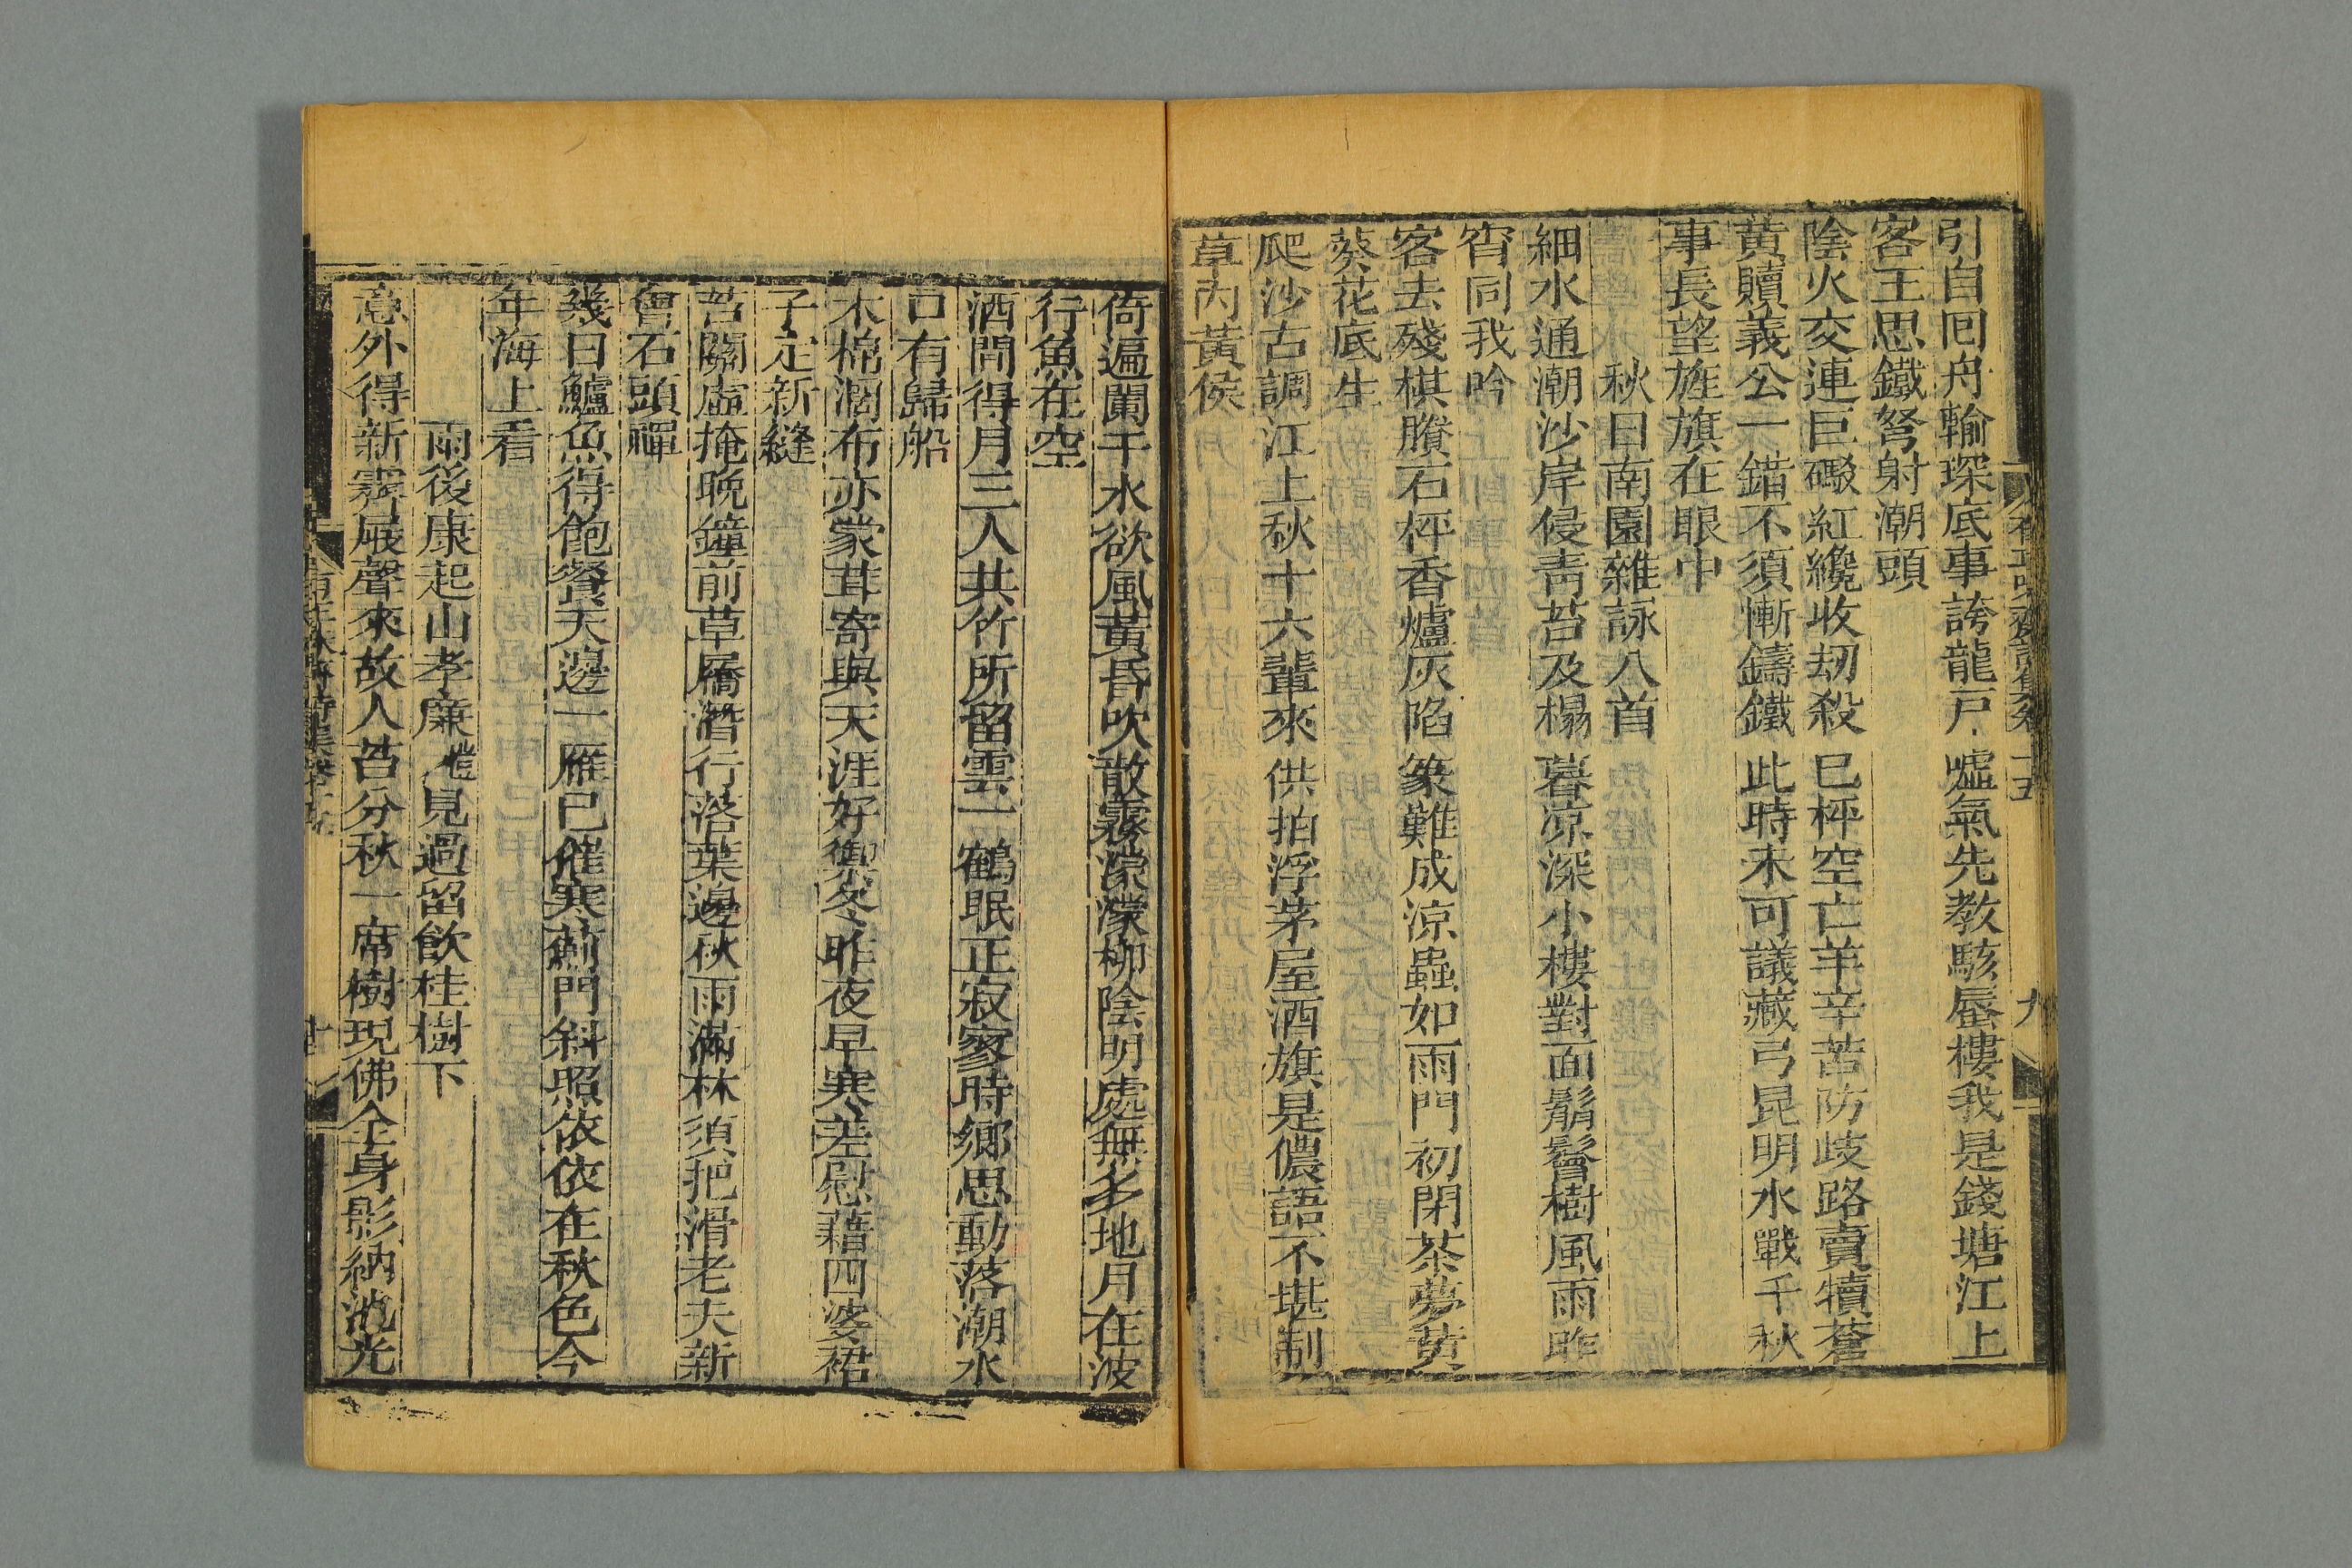 引自囘舟輸琛底事誇龍戸噓氣先教駭蜃樓我是錢塘江上
客王思鐵弩射潮頭
陰火交連巨礮紅纔收刧殺已枰空亡羊辛苦防歧路賣犢蒼
黃贖義公一錯不須慚鑄鐵此時未可議藏弓昆明水戰千秋
事長望旌旗在眼中
秋日南園雜詠八首
細水通潮沙岸侵靑苔及榻暮凉深小樓對面鬅鬙樹風雨昨
宵同我吟
客去殘棋賸石枰香爐灰陷篆難成涼蟲如雨門初閉茶夢黃
葵花底生
爬沙古調江上秋十六輩來供拍浮茅屋酒旗是儂語不堪制
草内黃侯
倚遍闌干水欲風黃昏吹散霧濛濛柳陰明處無多地月在波
行魚在空
酒問得月三人共竹所留雲一鶴眠正寂寥時鄉思動落潮水
口有歸船
木棉濶布亦蒙茸寄與天涯好禦冬昨夜早寒差慰藉四婆裙
子定新縫
苔關虛掩晚鐘前草屩潛行落葉邊秋雨滿林須把滑老夫新
會石頭禪
幾日鱸魚得飽餐天邊一雁已催寒薊門斜照依依在秋色今
年海上看
雨後康起山孝廉愷見過留飲桂樹下
意外得新霽屐聲來故人苔分秋一席樹現佛全身影納池光